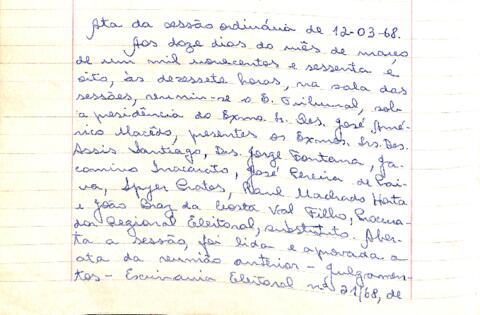 Ata da sessão ordinária de 12-03-68.
Aos doze dias do mês de março
de um mil novecentos e sessenta e
oito, às dezessete horas, na sala das
sessões, reuniu-se o E. Tribunal, sob
a presidência do Exmo. Sr. Des. José Amé-
rico Macêdo, presentes os Exmos. Srs. Des.
Assis Santiago, Drs. Jorge Fontana, Ja-
comino Inacarato, José Pereira de Pai-
va, Spyer Prates, Raul Machado Horta
e João Braz da Costa Val Filho, Procura-
dor Regional Eleitoral, substituto. Aber-
ta a sessão, foi lida e aprovada a
ata da reunião anterior - Julgamen-
tos - Escrivania Eleitoral nº 21/68, de